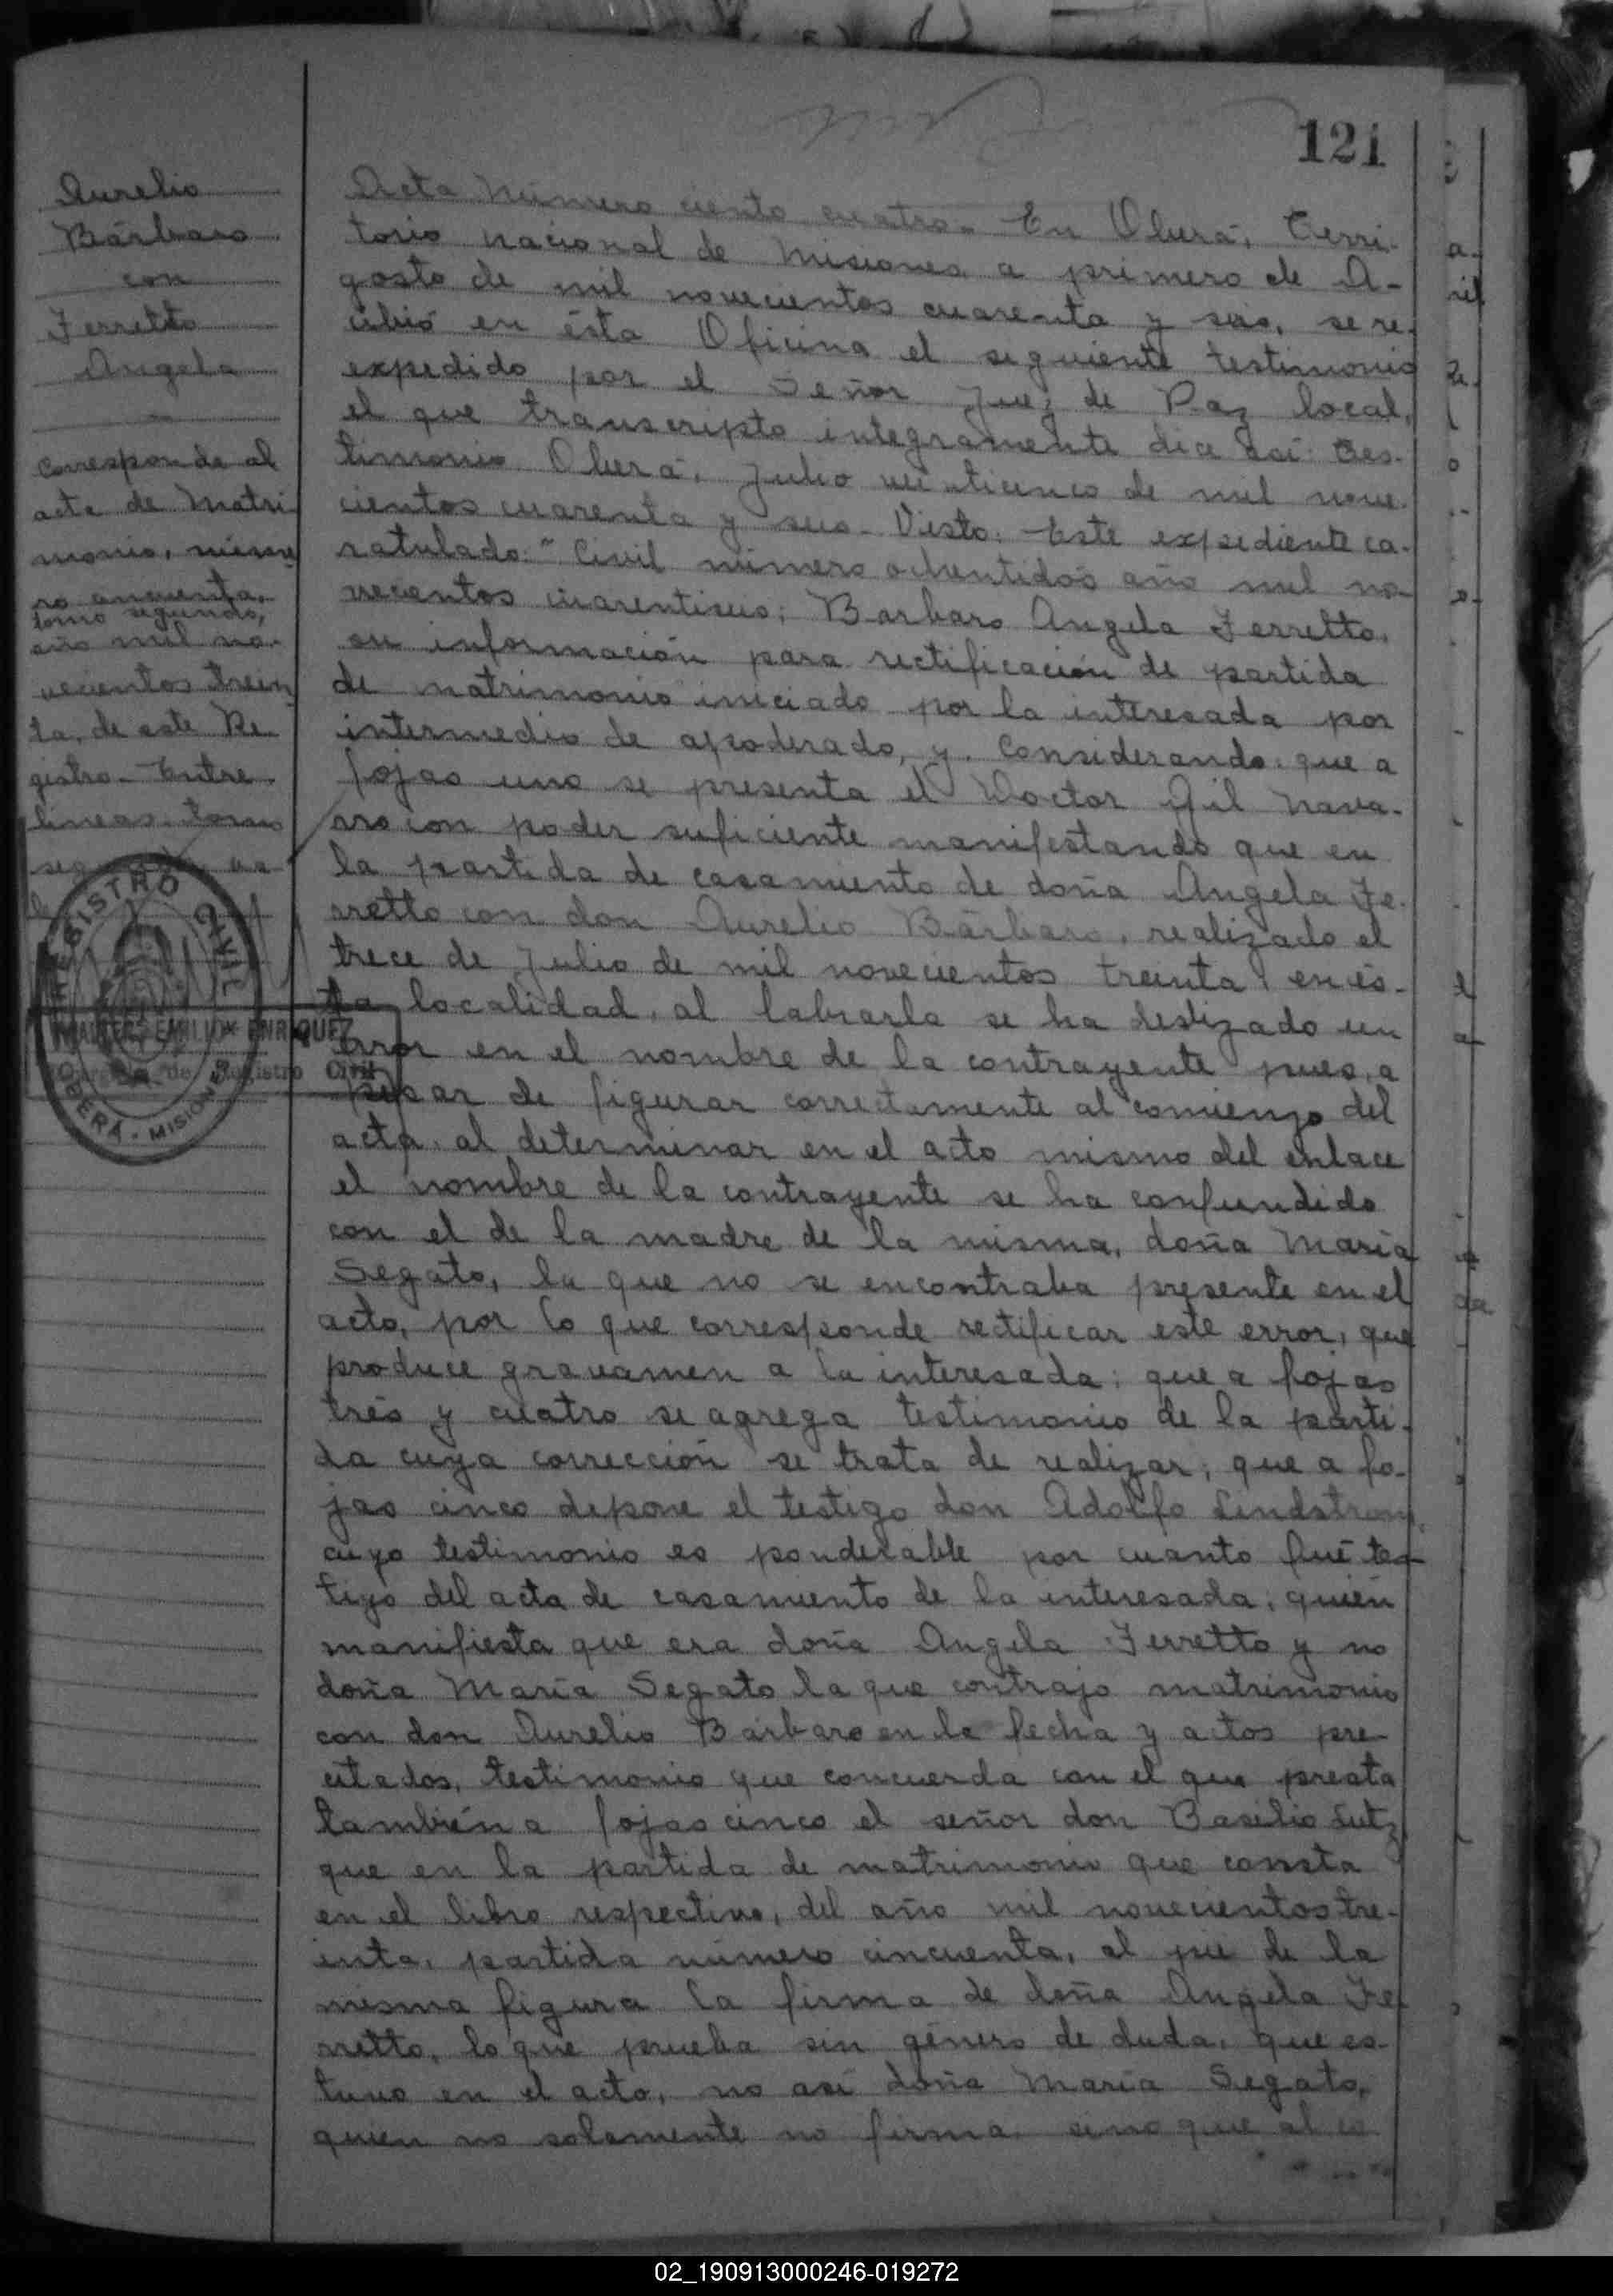 121
Aurelio
Bárbaro
con
Ferretto
Angela
Corresponde al
acta de Matri
monio, núme
ro cincuenta,
tomo segundo,
año mil no-
vecientos trein
ta, de este Re
gistro. Entre
lineas: tomo
REGISTRO CIVIL
OBERÁ - MISIONES
WALTER EMILIO ENRIQUEZ
Encargado de Registro Civil
Acta Número ciento cuatro. En Oberá, Terri-
torio Nacional de Misiones a primero de A-
gosto de mil novecientos cuarenta y seis, se re-
cibió en ésta Oficina el siguiente testimonio
expedido por el Señor Juez de Paz local,
el que transcripto integramente dice así: Tes-
timonio Oberá, Julio veinticinco de mil nove-
cientos cuarenta y seis. Visto: Este expediente ca-
ratulado: "Civil número ochentidós año mil no-
vecentos cuarentiseis; Barbaro Angela Ferretto,
su información para rectificación de partida
de matrimonio iniciado por la interesada por
intermedio de apoderado, y. Considerando: que a
fojas uno se presenta el Doctor Gil Nava-
rro con poder suficiente manifestando que en
la partida de casamiento de doña Angela Fe-
rretto con don Aurelio Bárbaro, realizado el
trece de Julio de mil novecientos treinta, en és-
ta localidad, al labrarla se ha deslizado un
error en el nombre de la contrayente pues, a
pesar de figurar correctamente al comienzo del
acta, al determinar en el acto mismo del enlace
el nombre de la contrayente se ha confundido
con el de la madre de la misma, doña María
Segato, la que no se encontraba presente en el
acto, por lo que corresponde rectificar este error, que
produce gravamen a la interesada; que a fojas
trés y cuatro se agrega testimonio de la parti-
da cuya corrección se trata de realizar; que a fo-
jas cinco depone el testigo don Adolfo Lindstrom,
cuyo testimonio es ponderable por cuanto fué tes-
tigo del acta de casamiento de la interesada, quién
manifiesta que era doña Angela Ferretto y no
doña María Segato la que contrajo matrimonio
con don Aurelio Bárbaro en la fecha y actos pre
citados, testimonio que concuerda con el que presta
también a fojas cinco el señor don Basilio Lutz
que en la partida de matrimonio que consta
en el libro respectivo, del año mil novecientos tre-
inta, partida número cincuenta, al pie de la
misma figura la firma de doña Angela Fe-
rretto, lo que prueba sin género de duda, que es-
tuvo en el acto, no así doña María Segato,
quien no solamente no firma, sino que al co
02_190913000246-019272